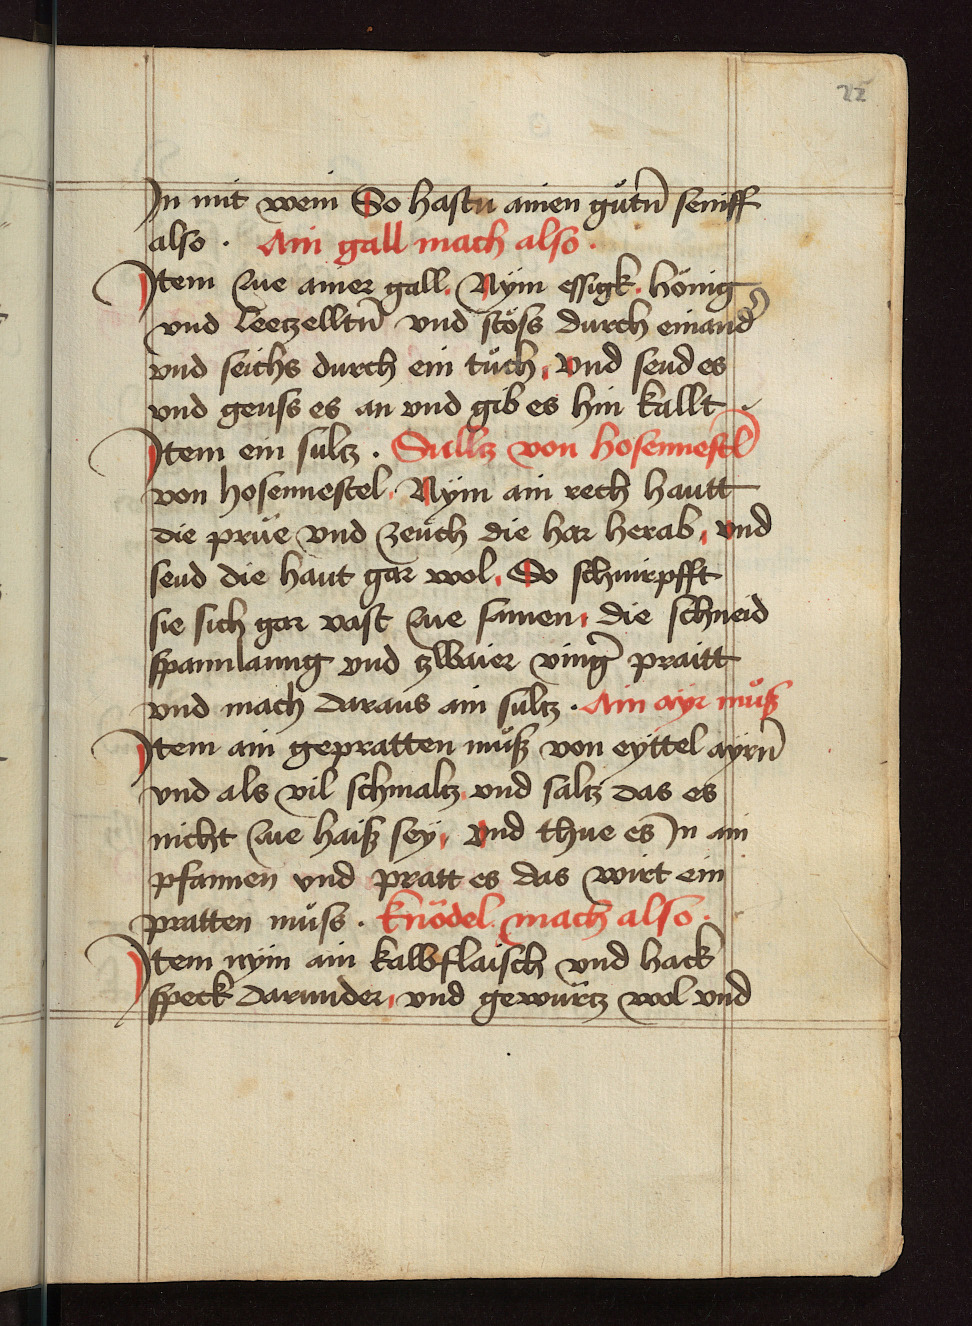 22
Jn mit wein So hastu ainen gůtn̄ seniff
also · Ain gall mach also ·
Jtem zue ainer gall. Nÿm essigk. hönig
vnd leetzelltn̄ vnd stöss durch einand̄
vnd seichs durch ein tůch. vnd seud es
vnd geuss es an vnd gib es hin kallt ·
Jtem ein sultz · Sulltz von hosennestel
von hosennestel. Nÿm ain rech hautt
die prüe vnd zeuch die har herab. vnd
seud die haut gar wol. So schnirpfft
sie sich gar vast zue samen. die schneid
spannlanng vnd zwaier vinḡ praitt
vnd mach daraus ain sultz · Ain ayr můß
Jtem ain gepratten můß von eyttel ayrn̄
vnd als vil schmaltz. vnd saltz das es
nicht zue haiß seÿ. vnd thue es Jn ain
pfannen vnd pratt es das wirt ein
pratten můss · knödel. mach also.
Jtem nÿm ain kalbflaisch vnd hack
speck darunder. vnd gewürtz wol vnd